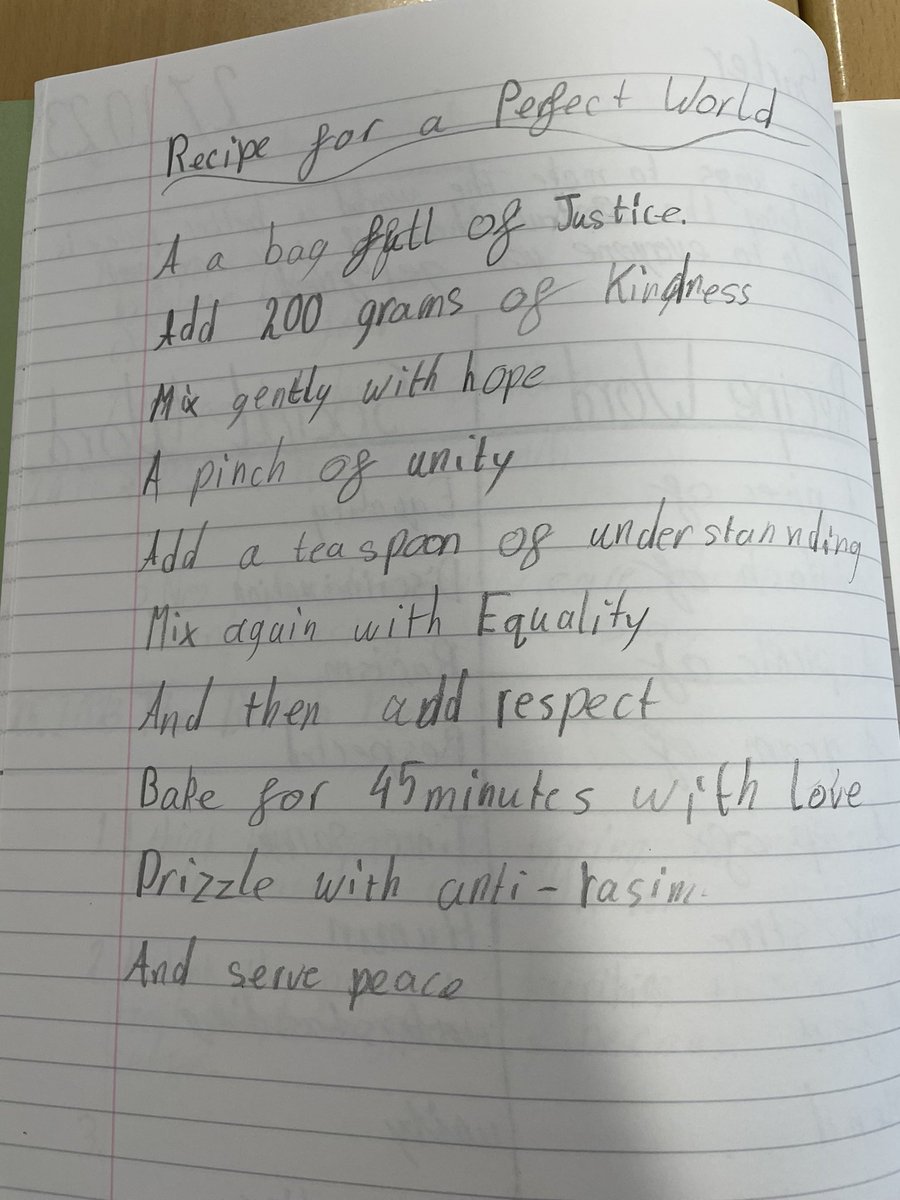 Recipe for a Perfect World
A a bag full of Justice.
Add 200 grams of Kindness
Mix gently with hope
A pinch of unity
Add a teaspoon of understannding
Mix again with Equality
And then add respect
Bake for 45 minutes with love
Drizzle with anti-rasim.
And serve peace